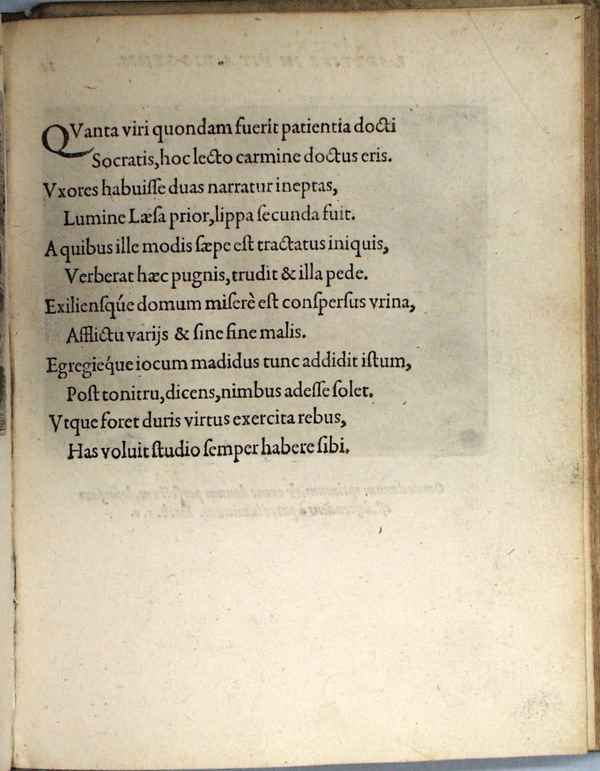 QVanta viri quondam fuerit patientia docti
Socratis, hoc lecto carmine doctus eris.
Vxores habuisse duas narratur ineptas,
Lumine Læsa prior, lippa secunda fuit.
A quibus ille modis sæpe est tractatus iniquis,
Verberat hæc pugnis, trudit & illa pede.
Exiliensq́ue domum miserè est conspersus vrina,
Afflictu varijs & sine fine malis.
Egregieq́ue iocum madidus tunc addidit istum,
Post tonitru, dicens, nimbus adesse solet.
Vtque foret duris virtus exercita rebus,
Has voluit studio semper habere sibi.